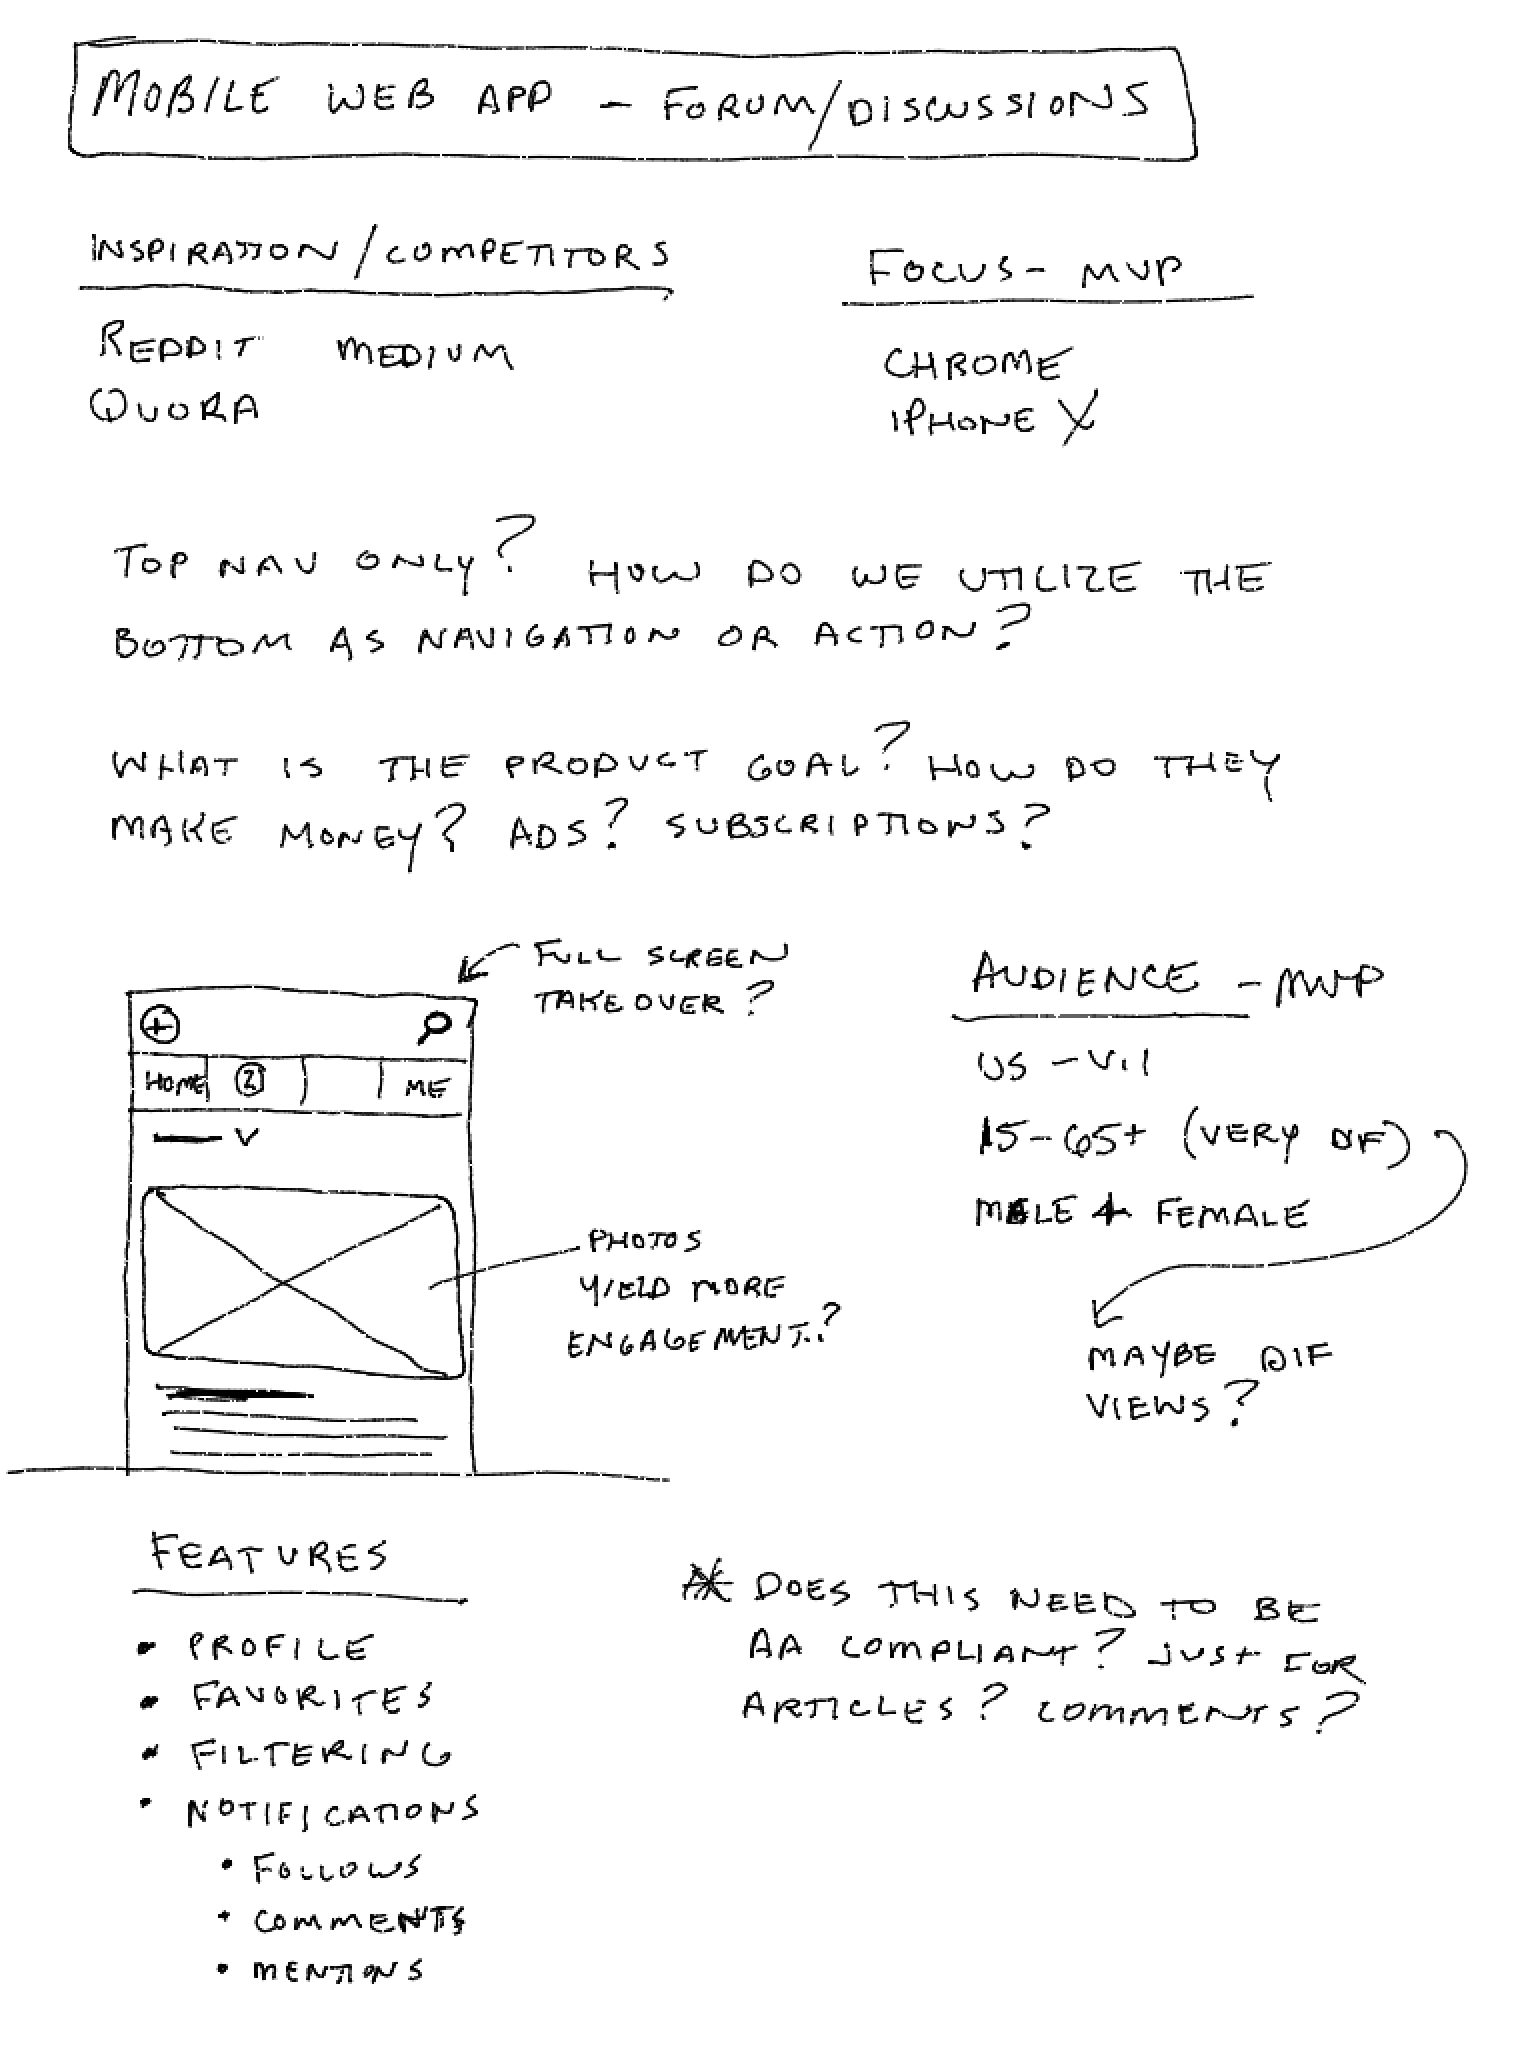 MOBILE WEB APP - FORUM/DISCUSSIONS
INSPIRATION/COMPETITORS
REDDIT MEDIUM
QUORA
FOCUS - MVP
CHROME
IPHONE X
TOP NAV ONLY? HOW DO WE UTILIZE THE
BOTTOM AS NAVIGATION OR ACTION?
WHAT IS THE PRODUCT GOAL? HOW DO THEY
MAKE MONEY? ADS? SUBSCRIPTIONS?
FULL SCREEN
TAKEOVER?
HOME 2 ME
PHOTOS
YIELD MORE
ENGAGEMENT..?
AUDIENCE - MVP
US - V.1
15-65+ (VERY DIF)
MALE + FEMALE
MAYBE DIF
VIEWS?
FEATURES
• PROFILE
• FAVORITES
• FILTERING
• NOTIFICATIONS
• FOLLOWS
• COMMENTS
• MENTIONS
* DOES THIS NEED TO BE
AA COMPLIANT? JUST FOR
ARTICLES? COMMENTS?